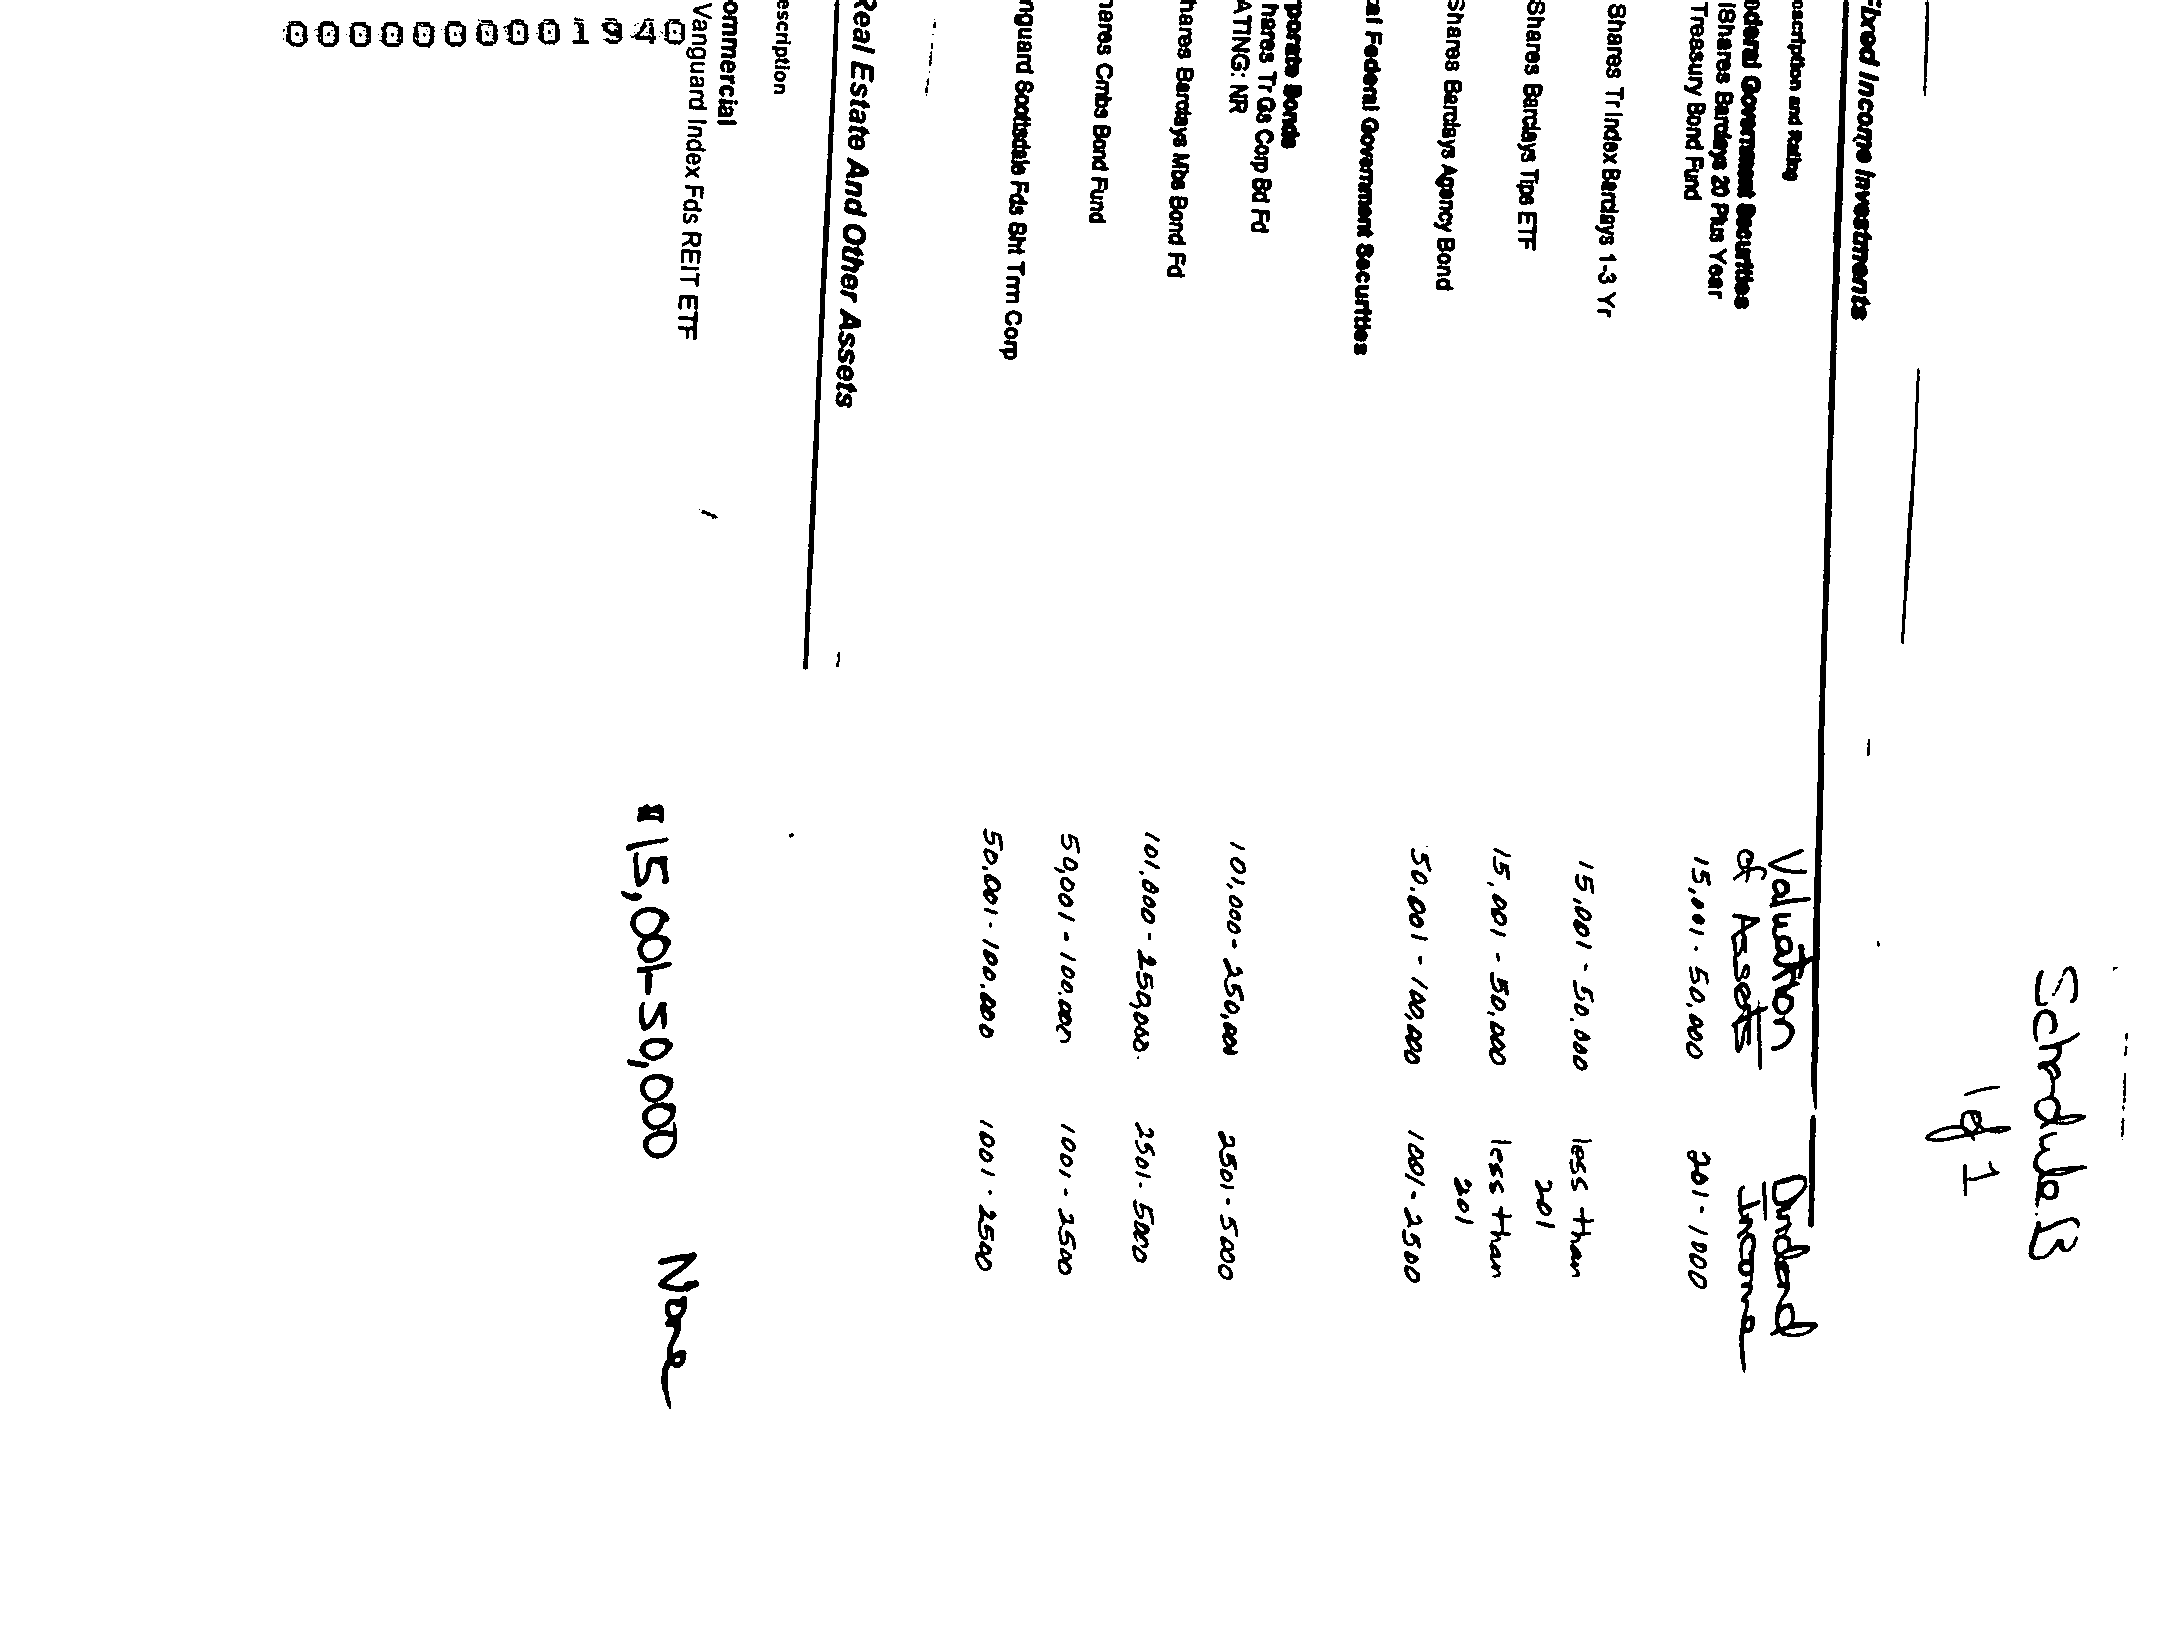 Schedule B
1 of 1
Fixed Income Investments
Valuation of Assets
Dividend Income
escription and Rating
ederal Government Securities
iShares Barclays 20 Plus Year
Treasury Bond Fund 15,001 - 50,000 201 - 1000
Shares Tr Index Barclays 1-3 Yr 15,001 - 50,000 less than 201
Shares Barclays Tips ETF 15,001 - 50,000 less than 201
Shares Barclays Agency Bond 50,001 - 100,000 1001 - 2500
al Federal Government Securities
porate Bonds
hares Tr Gs Corp Bd Fd 101,000 - 250,000 2501 - 5000
ATING: NR
hares Barclays Mbs Bond Fd 101,000 - 250,000 2501 - 5000
hares Cmbs Bond Fund 50,001 - 100,000 1001 - 2500
nguard Scottsdale Fds Sht Trm Corp 50,001 - 100,000 1001 - 2500
Real Estate And Other Assets
escription
ommercial
Vanguard Index Fds REIT ETF 15,001-50,000 None
0000000001940